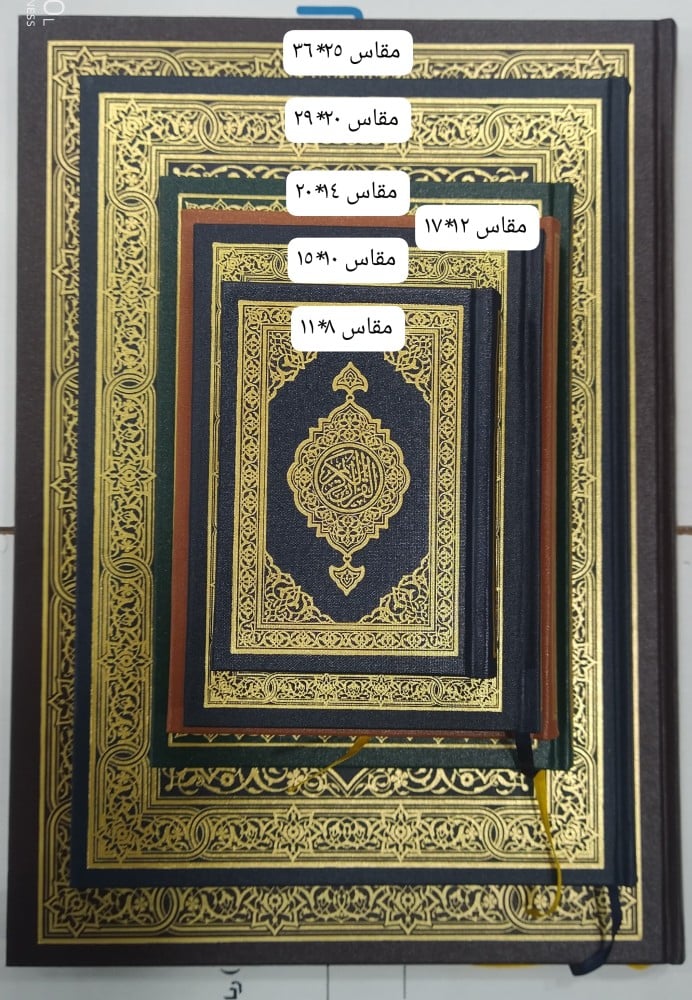 مقاس ٢٥*٣٦
مقاس ٢٠*٢٩
مقاس ١٤*٢٠
مقاس ١٢*١٧
مقاس ١٠*١٥
مقاس ٨*١١